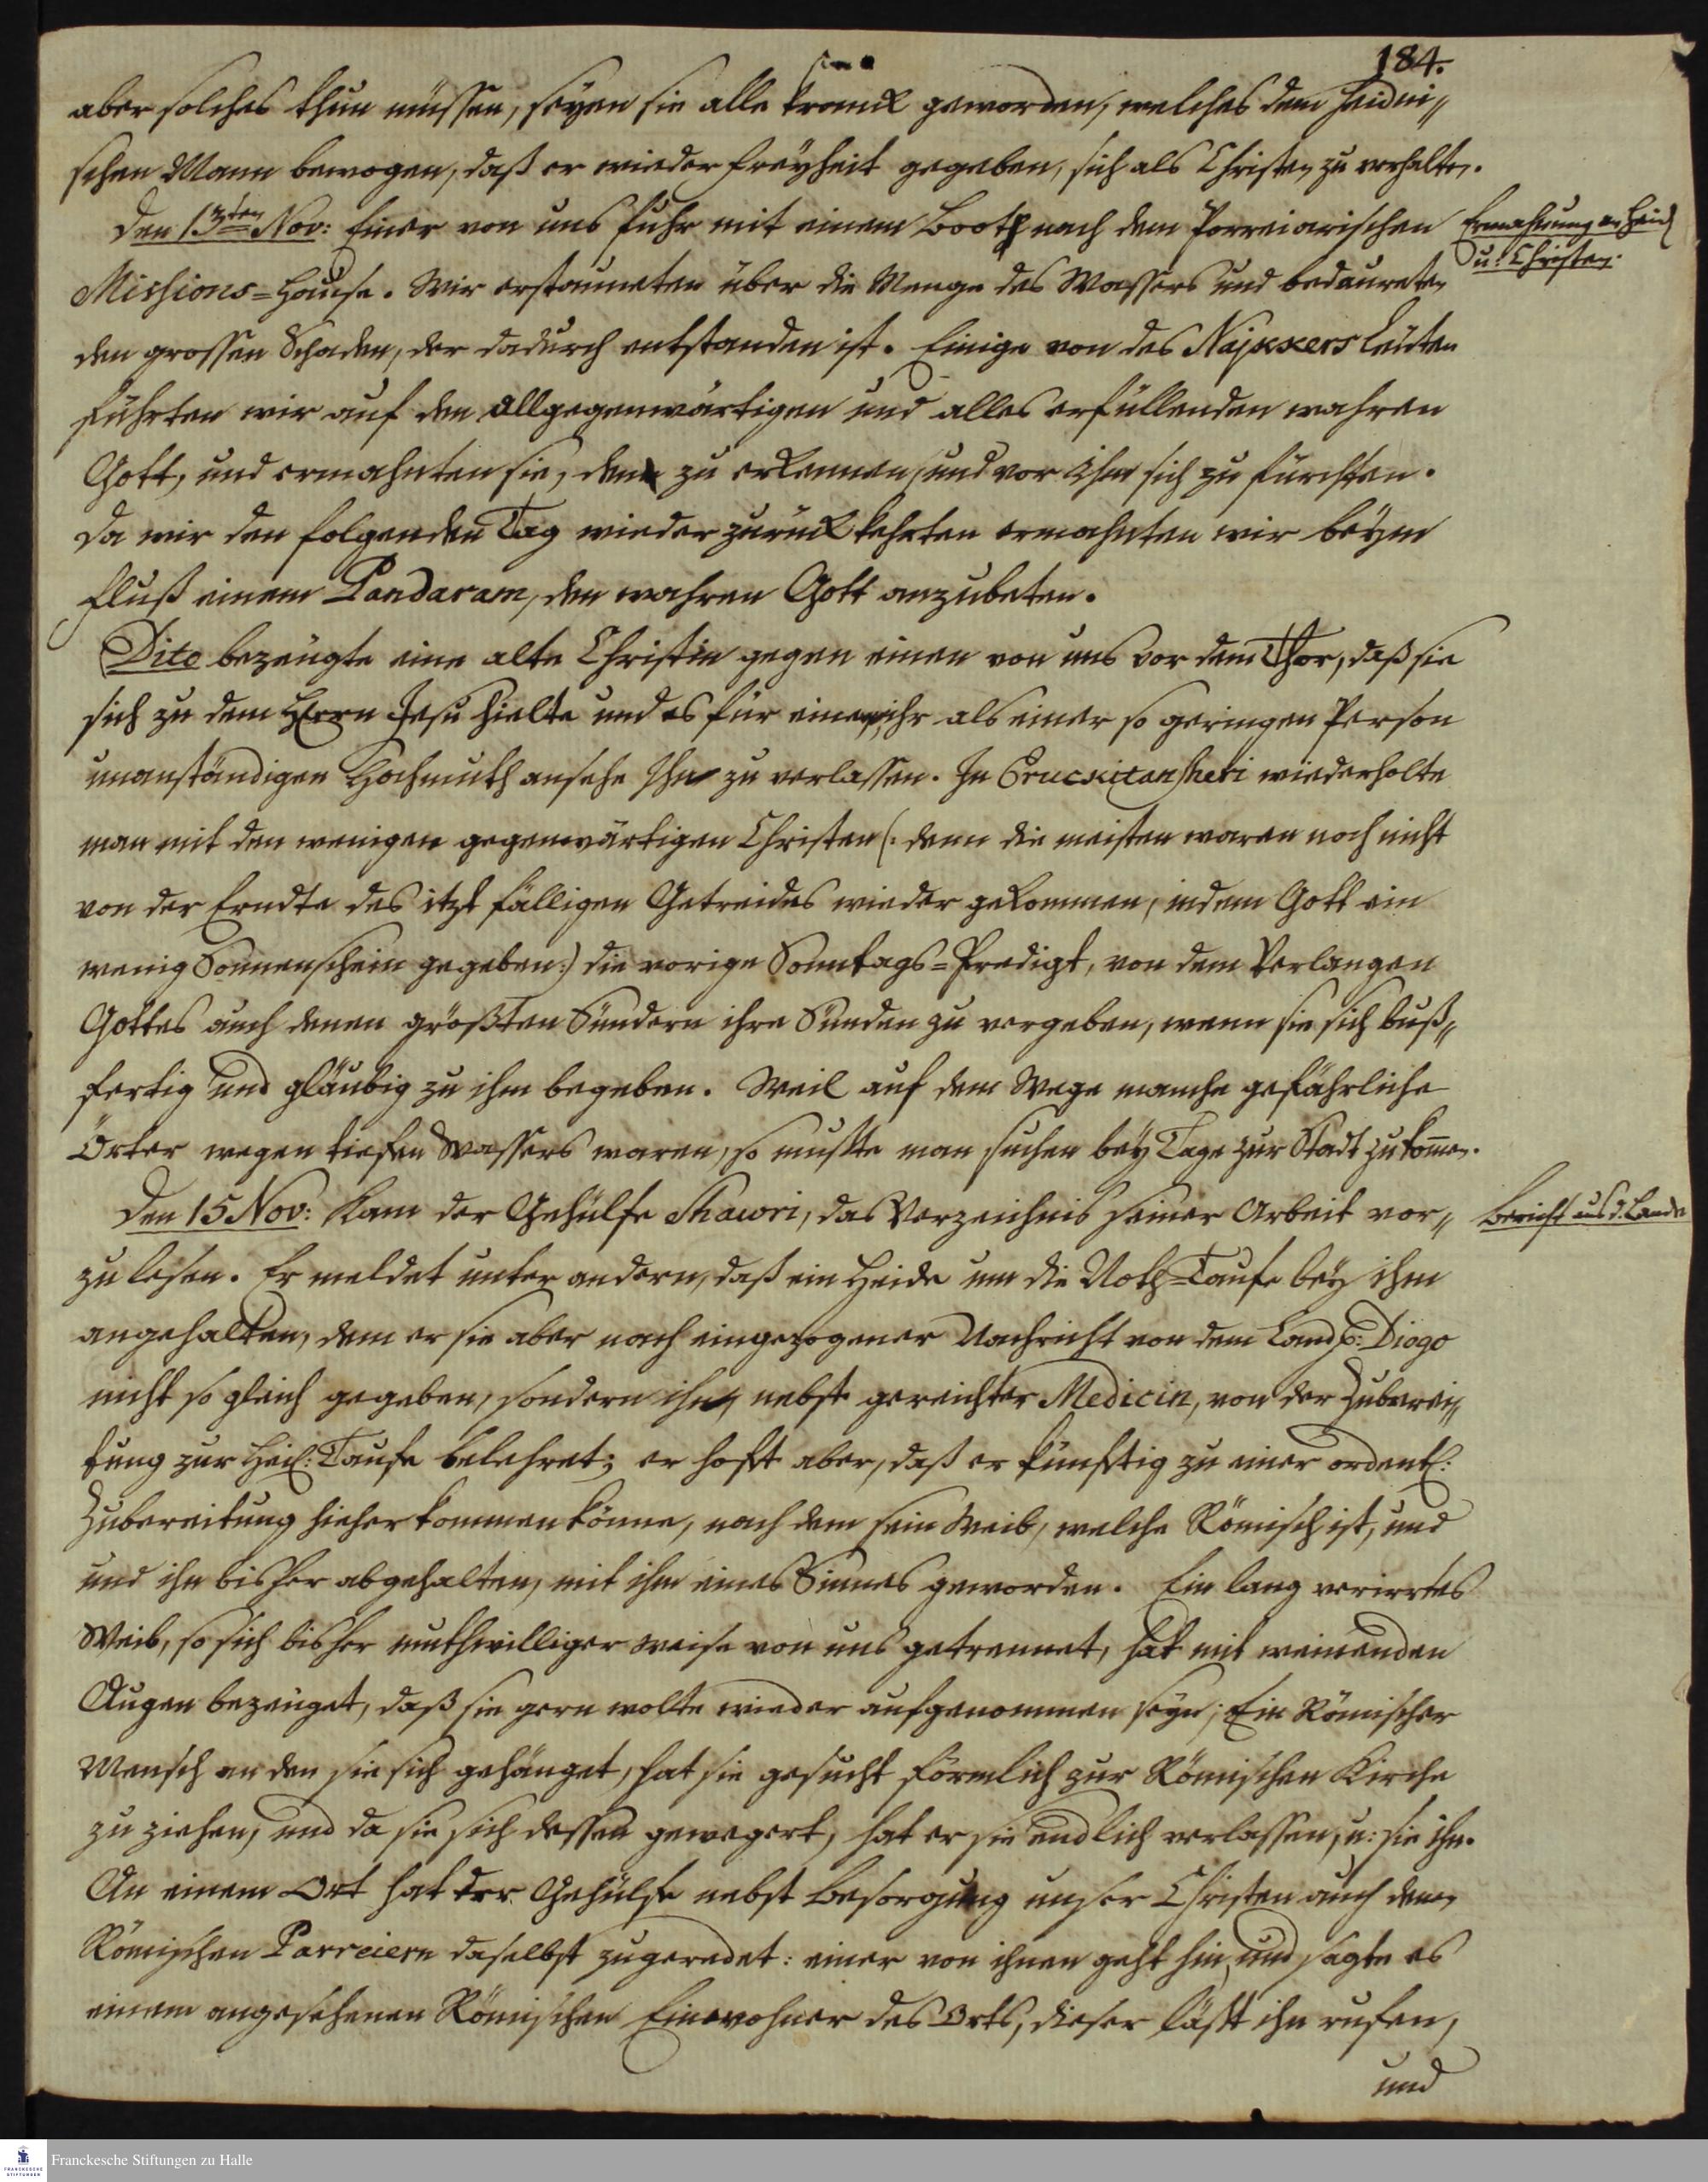 184.
aber solches thun müssen, seyen sie alle kranck geworden, welches dem Heidni„
schen Mann bewogen, daß er wieder Freyheit gegeben, sich als Christen zu verhalten.
Den 13ten Nov: Einer von uns fuhr mit einem Booth nach dem Porreiarischen
Ermahnung an Heid.
u: Christen.
Missions=Hause. Wir erstauneten über die Menge des Wassers und bedaureten
den grossen Schaden, der dadurch entstanden ist. Einige von des Najkkers Leuten
führten wir auf den allgegenwärtigen und alles erfüllenden wahren
Gott, und ermahnten sie, den zu erkennen, und vor Ihm sich zu fürchten.
Da wir den folgenden Tag wieder zurück kehrten ermahnten wir beym
Fluß einem Pandaram, den wahren Gott anzubeten.
Dito bezeugte eine alte Christin gegen einen von uns vor dem Thor, daß sie
sich zu dem HErrn Jesu hielte und es für einen, ihr als einer so geringen Person
unanständigen Hochmuth ansehe Ihn zu verlassen. In Eruckitansheri wiederholte
man mit den wenigen gegenwärtigen Christen (: denn die meisten waren noch nicht
von der Erndte des itzt fälligen Getreides wieder gekommen, indem Gott ein
wenig Sonnenschein gegeben:) die vorige Sonntags=Predigt, von dem Verlangen
Gottes auch denen größten Sündern ihre Sünden zu vergeben, wenn sie sich buß„
fertig und gläubig zu ihm begeben. Weil auf dem Wege manche gefährliche
Örter wegen tiefen Wassers waren, so mußte man suchen bey Tage zur Stadt zu kom̄en.
Den 15 Nov: Kam der Gehülfe Shawri, das Verzeichnis seiner Arbeit vor„
Bericht aus d. Lande
zu lesen. Er meldet unter andern, daß ein Heide um die Noth=Taufe bey ihm
angehalten, dem er sie aber nach eingezogener Nachricht von dem Landp: Diogo
nicht so gleich gegeben, sondern ihn, nebst gereichter Medicin, von der Zuberei„
tung zur Heil: Taufe belehret; er hofft aber, daß er künfftig zu einer ordentl:
Zubereitung hieher kommen könne, nach dem sein Weib, welche Römisch ist, und
und ihn bisher abgehalten, mit ihm eines Sinnes geworden. Ein lang verirrtes
Weib, so sich bisher muthwilliger weise von uns getrennet, hat mit weinenden
Augen bezeuget, daß sie gern wolte wieder aufgenommen seyn; Ein Römischer
Mensch an den sie sich gehänget, hat sie gesucht förmlich zur Römischen Kirche
zu ziehen, und da sie sich dessen gewegert, hat er sie endlich verlassen, u: sie ihn.
An einem Ort hat der Gehülfe nebst Besorgung unser Christen auch denen
Römischen Parreiern daselbst zugeredet: einer von ihnen geht hin, und sagte es
einem angesehenen Römischen Einwohner des Orts, dieser läßt ihn rufen,
und
Franckesche Stiftungen zu Halle
FRANCKESCHE
STIFTUNGEN